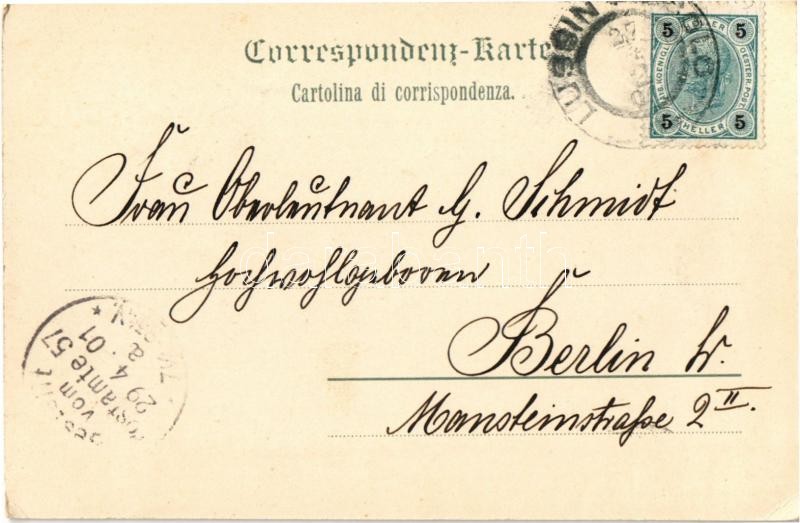 Correspondenz-Karte
Cartolina di corrispondenza.
LUSSIN
5 HELLER 5
KAIS. KOENIGL. OESTERR. POST
5 HELLER 5
Frau Oberleutnant G. Schmidt
Hochwohlgeboren
Berlin W.
Mansteinstraße 2 II.
Bestellt
vom
Postamte 57
29 4. 01
darabanth